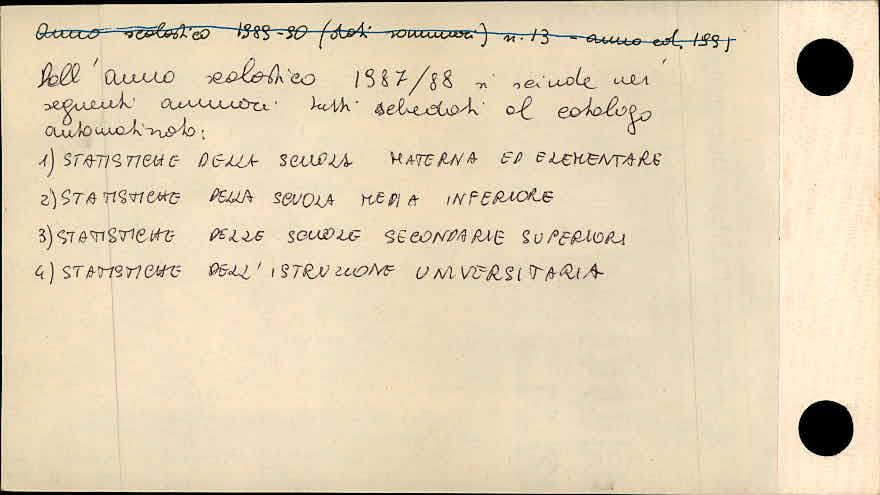 Anno scolastico 1989-90 (dati sommari) n. 13 - anno ed. 1991
Dall'anno scolastico 1987/88 si scinde nei
seguenti annuari tutti schedati al catalogo
automatizzato:
1) STATISTICHE DELLA SCUOLA MATERNA ED ELEMENTARE
2) STATISTICHE DELLA SCUOLA MEDIA INFERIORE
3) STATISTICHE DELLE SCUOLE SECONDARIE SUPERIORI
4) STATISTICHE DELL'ISTRUZIONE UNIVERSITARIA